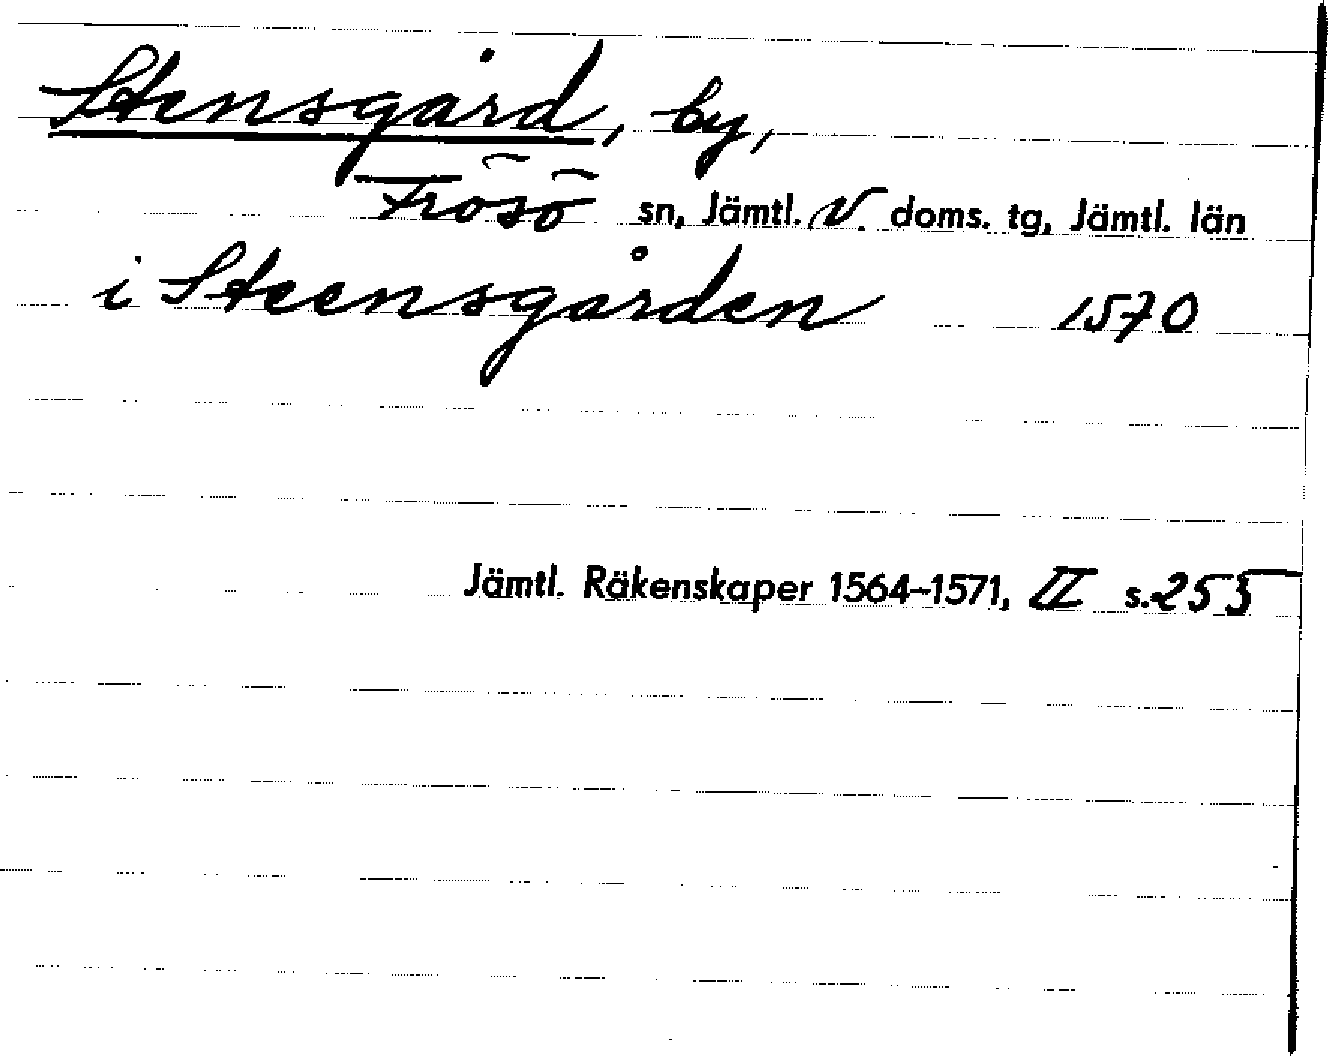 Stensgård, by,
Frösö sn, Jämtl. V. doms. tg, Jämtl. län
i Steensgården 1570
Jämtl. Räkenskaper 1564-1571, II s. 255